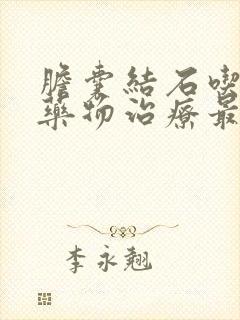 膽囊結石喫
藥物治療最
李永翹